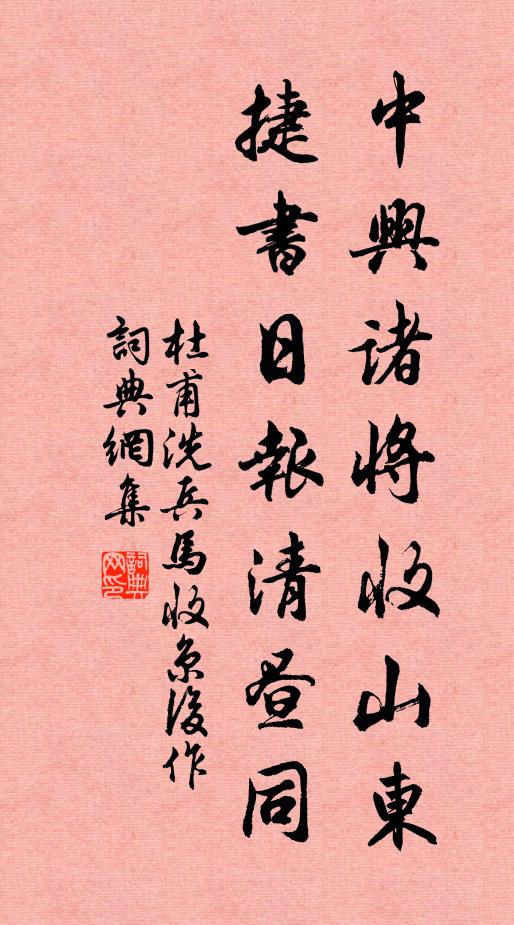 中興諸將收山東
捷書日報清昼同
杜甫洗兵馬收京後作
詞典網集
詞典
网印